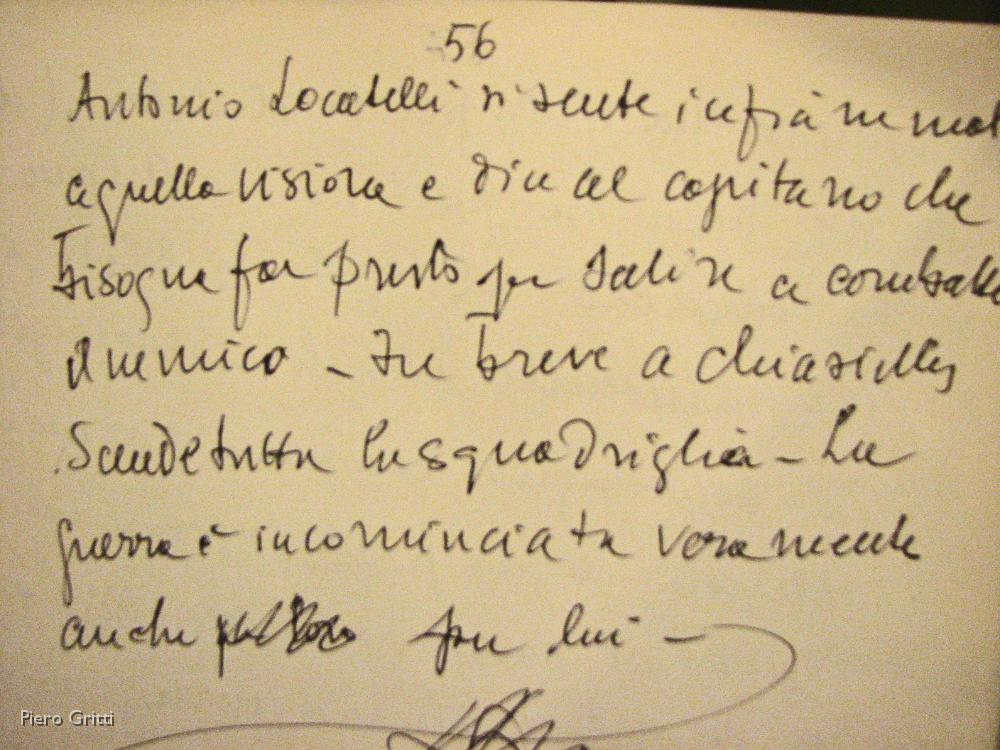 56
Antonio Locatelli si sente infiammat
a quella visione e dice al capitano che
bisogna far presto per salire a combatte
il nemico - In breve a Chiasiellis
Scende tutta la squadriglia - La
guerra è incominciata veramente
anche per lui -
Piero Gritti